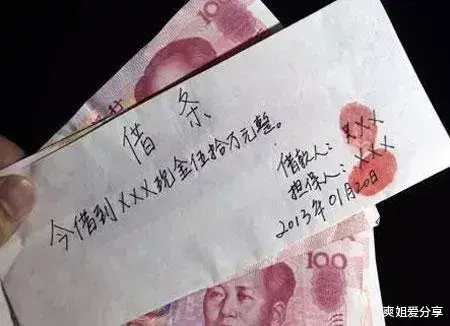 借条
今借到XXX现金伍拾万元整。
借款人：XXX
担保人：XXX
2013年01月20日
100
100
爽姐爱分享